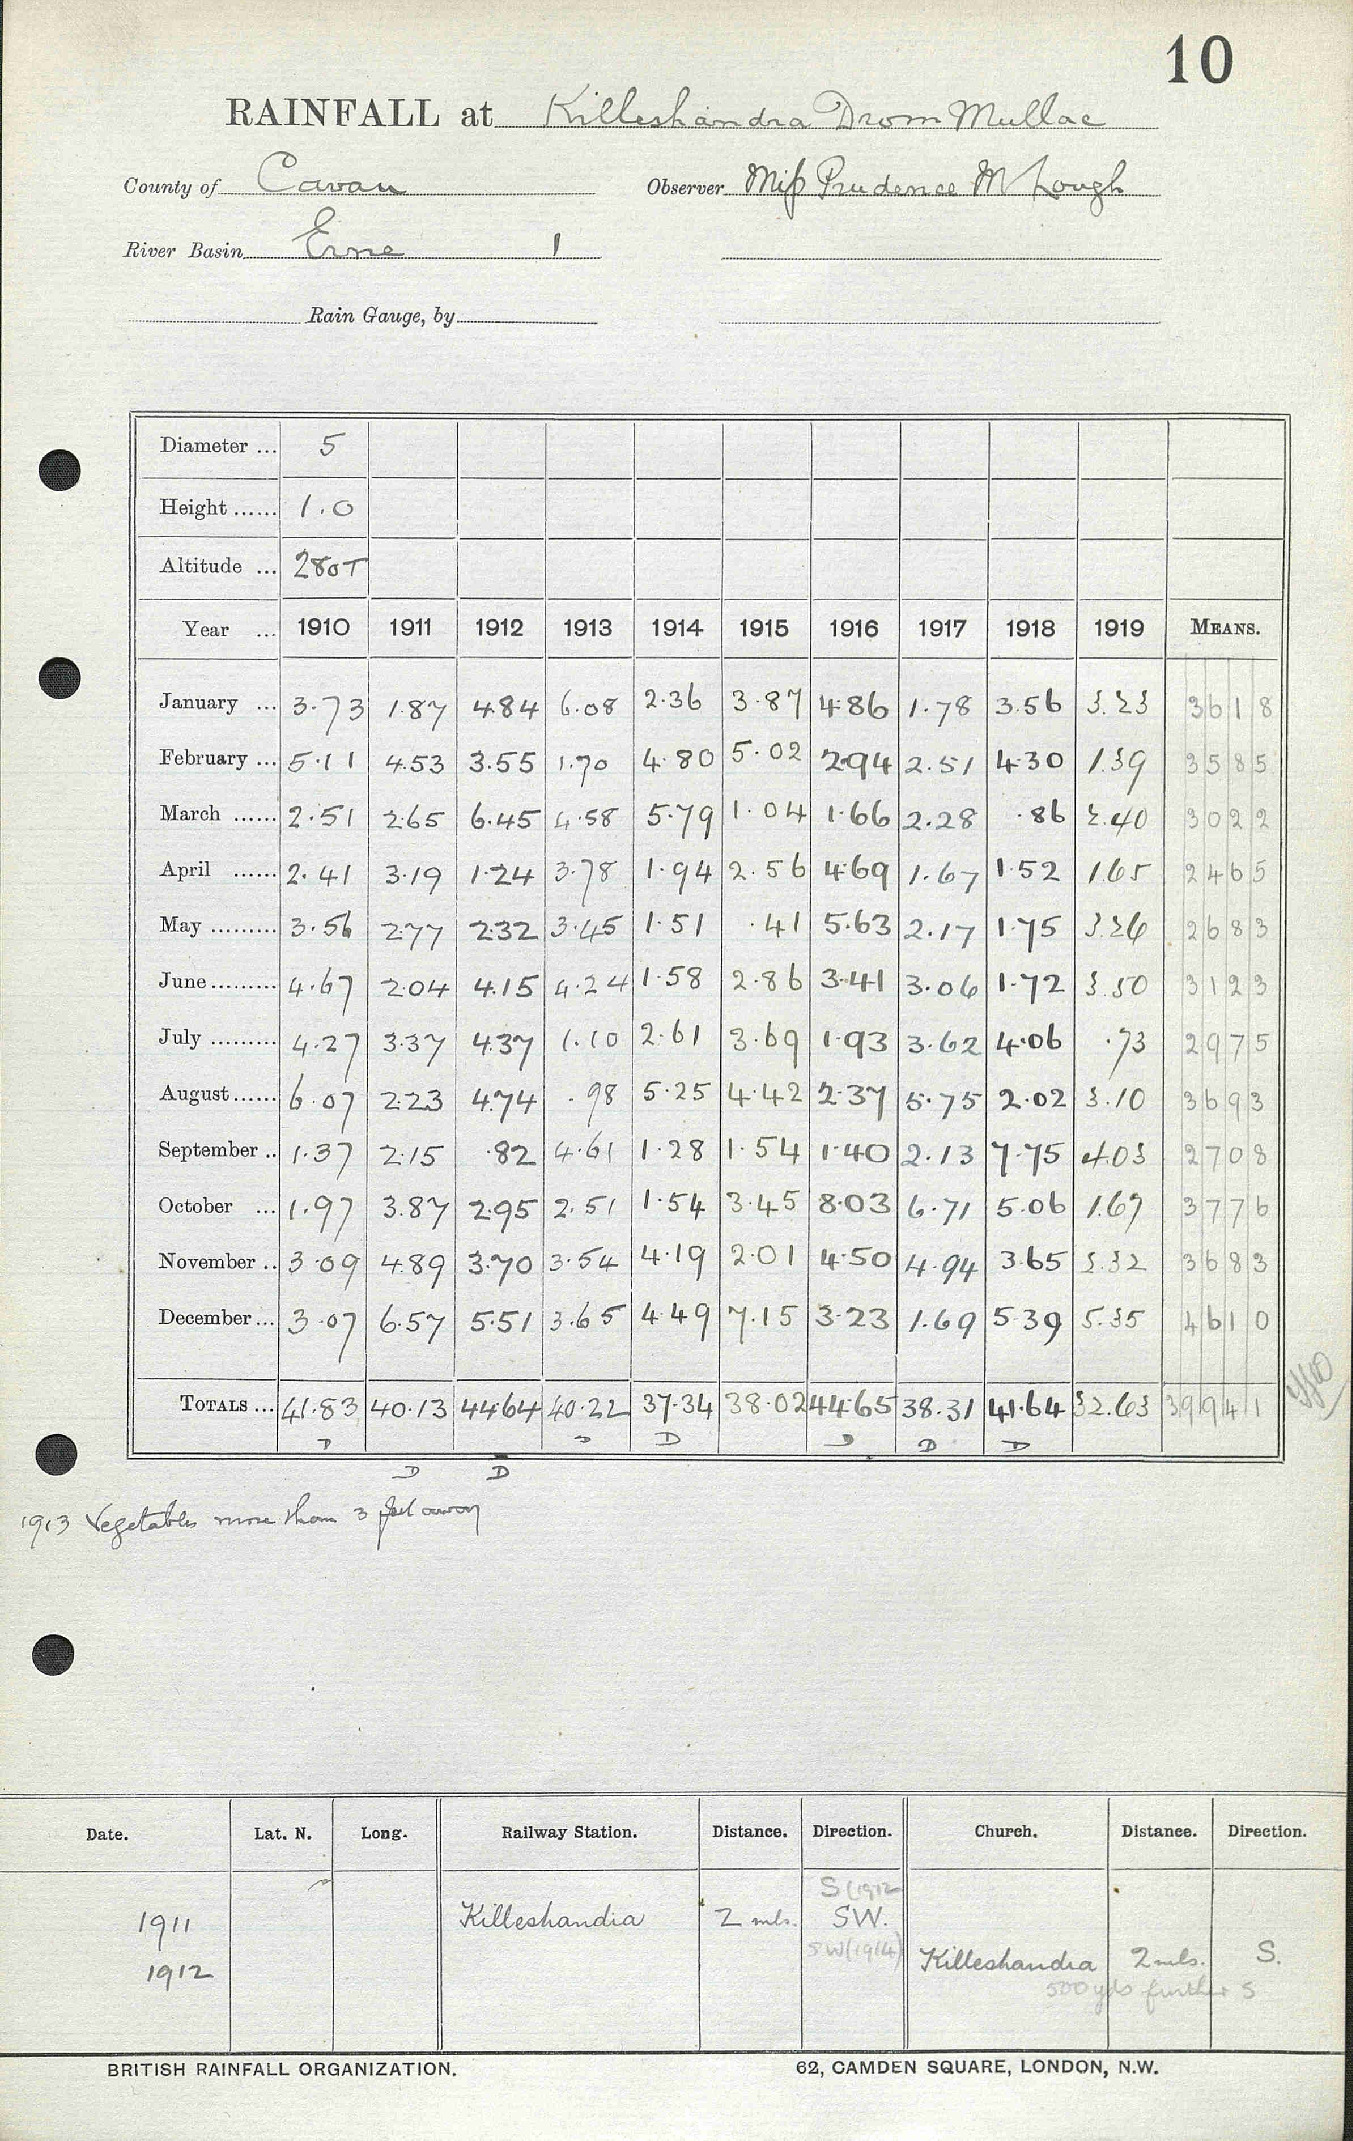 10
RAINFALL at Killeshandra Drom Mullac
County of Cavan Observer Miss Prudence McLough
River Basin Erne 1
Rain Gauge, by
Diameter ... 5
Height ...... 1.0
Altitude ... 280T
Year ... 1910 1911 1912 1913 1914 1915 1916 1917 1918 1919 MEANS.
January ... 3.73 1.87 4.84 6.08 2.36 3.87 4.86 1.78 3.56 3.23 3618
February ... 5.11 4.53 3.55 1.70 4.80 5.02 2.94 2.51 4.30 1.39 3585
March ...... 2.51 2.65 6.45 4.58 5.79 1.04 1.66 2.28 .86 2.40 3022
April ...... 2.41 3.19 1.24 3.78 1.94 2.56 4.69 1.67 1.52 1.65 2465
May ......... 3.56 2.77 2.32 3.45 1.51 .41 5.63 2.17 1.75 3.26 2683
June ......... 4.67 2.04 4.15 4.24 1.58 2.86 3.41 3.06 1.72 3.50 3123
July ......... 4.27 3.37 4.37 1.10 2.61 3.69 1.93 3.62 4.06 .73 2975
August ...... 6.07 2.23 4.74 .98 5.25 4.42 2.37 5.75 2.02 3.10 3693
September .. 1.37 2.15 .82 4.61 1.28 1.54 1.40 2.13 7.75 4.03 2708
October ... 1.97 3.87 2.95 2.51 1.54 3.45 8.03 6.71 5.06 1.67 3776
November .. 3.09 4.89 3.70 3.54 4.19 2.01 4.50 4.94 3.65 3.32 3683
December ... 3.07 6.57 5.51 3.65 4.49 7.15 3.23 1.69 5.39 5.35 4610
TOTALS ... 41.83 40.13 44.64 40.22 37.34 38.02 44.65 38.31 41.64 32.63 39941
D D D D D D
D D
1913 Vegetables more than 3 feet away
Date. Lat. N. Long. Railway Station. Distance. Direction. Church. Distance. Direction.
S (1912
1911 Killeshandra 2 mls. SW.
SW (1914)
1912 Killeshandra 2 mls. S.
500 yds further S
BRITISH RAINFALL ORGANIZATION. 62, CAMDEN SQUARE, LONDON, N.W.